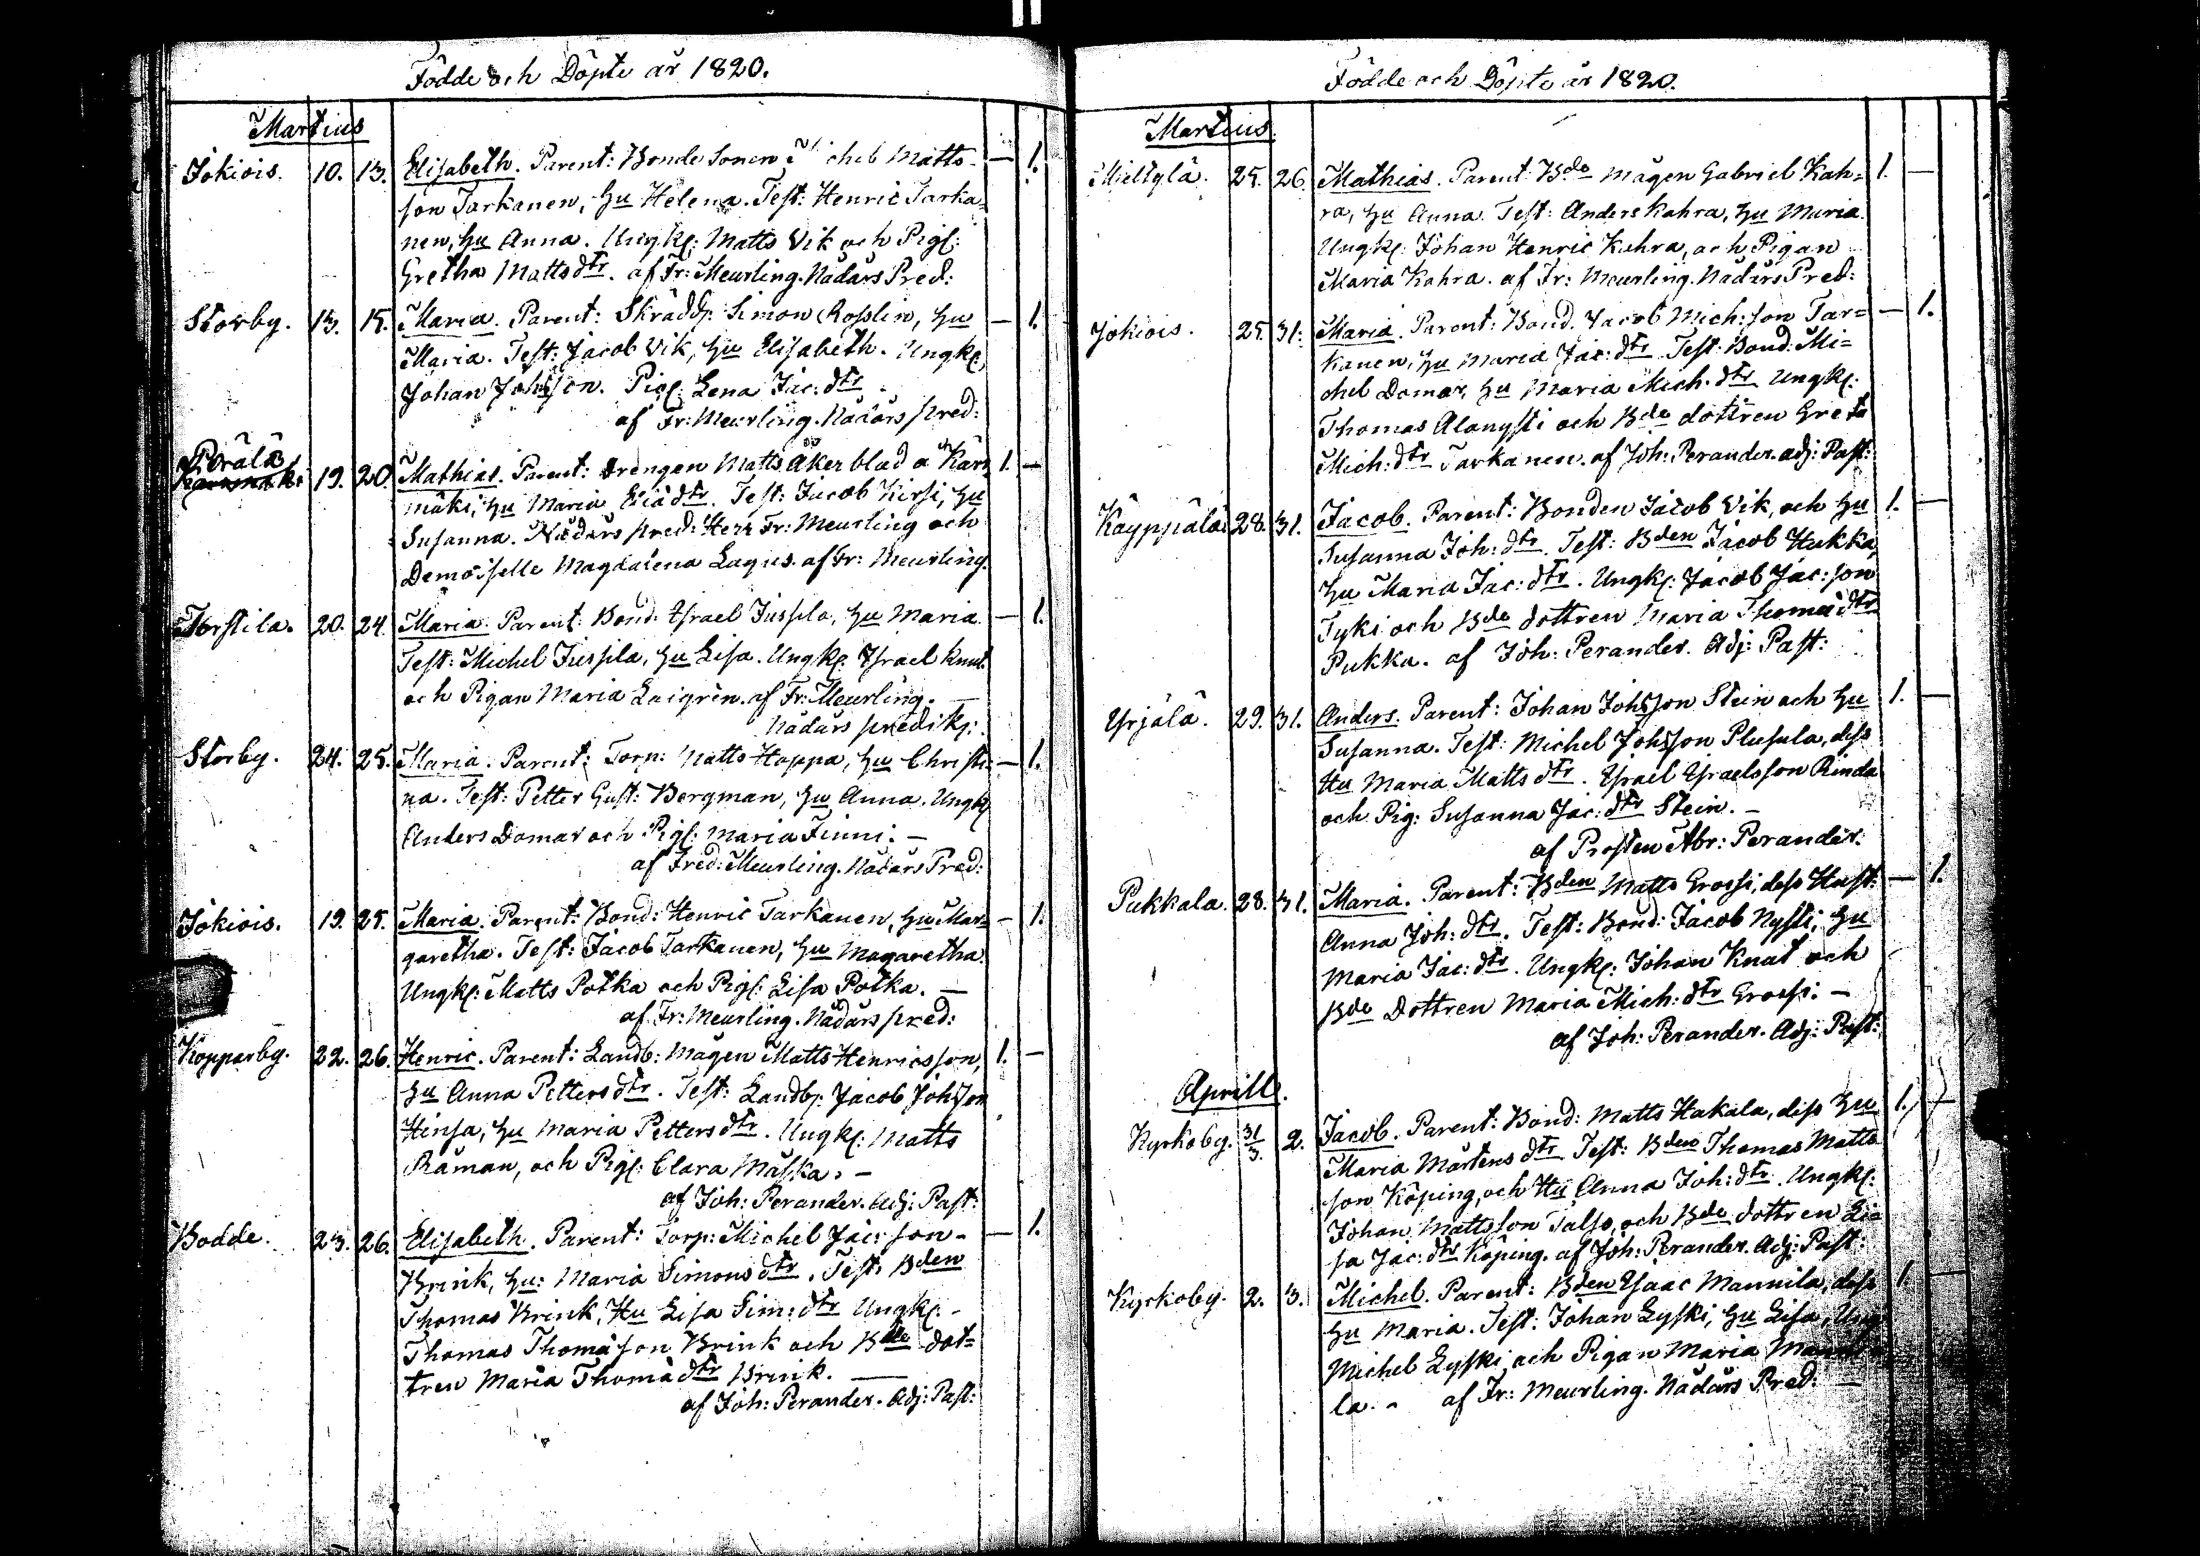 Födde och Döpte år 1820.
Martius
Jokiois. 10. 13. Elisabeth. Parent: Bonde Sonen Michel Matts- — 1.
son Tarkanen, Hu Helena. Test: Henric Tarka=
nen, Hu Anna. Ungk: Matts Vik och Pig:
Gretha Matts dtr. af Fr: Meurling. Nådårs Pred:
Storby. 13. 15. Maria. Parent: Skrädd: Simon Rosslin, Hu — 1.
Maria. Test: Jacob Vik, Hu Elisabeth. Ungk:
Johan Johsson. Pig: Lena Jac: dtr.
af Fr: Meurling. Nådårs pred:
Perälä
19. 20. Mathias. Parent: Drengen Matts Åkerblad a Kär= 1. —
mäki, Hu Maria Eliä dtr. Test: Jacob Kirsi, Hu
Susanna. Nådårs pred: Herr Fr: Meurling och
Demoiselle Magdalena Lagus. af Fr: Meurling.
Torstila. 20. 24. Maria. Parent: Bond: Israel Jussila, Hu Maria. — 1.
Test: Michel Jussila, Hu Lisa. Ungk: Israel Knut
och Pigan Maria Laigrén. af Fr: Meurling. —
Nådårs predik:
Storby. 24. 25. Maria. Parent: Torp: Matts Hoppa, Hu Christi= — 1.
na. Test: Petter Gust: Bergman, Hu Anna. Ungk:
Anders Domar och Pig: Maria Finni. —
af Fred: Meurling. Nådårs Pred:
Jokiois. 19. 25. Maria. Parent: Bond: Henric Tarkanen, Hu Mar= — 1.
garetha. Test: Jacob Tarkanen, Hu Magaretha.
Ungk: Matts Potka och Pig: Lisa Potka. —
af Fr: Meurling. Nådårs pred:
Kopparby. 22. 26. Henric. Parent: Landb: mågen Matts Henricsson, 1. —
Hu Anna Petters dtr. Test: Landb: Jacob Johsson
Hinsa, Hu Maria Petters dtr. Ungk: Matts
Råman, och Pig: Clara Maska. —
af Joh: Perander. Adj: Past:
Bodde. 23. 26. Elisabeth. Parent: Torp: Michel Jac: son — — 1.
Brink, Hu: Maria Simons dtr. Test: Bden
Thomas Brink, Hu Lisa Sim: dtr Ungk: -
Thomas Thomæson Brink och Bde dot=
tren Maria Thomæ dtr Brink. —
af Joh: Perander. Adj: Past:
Födde och Döpte år 1820.
Martius.
25. 26. Mathias. Parent: Bde mågen Gabriel Kah= 1. —
ra, Hu Anna. Test: Anders Kahra, Hu Maria.
Ungk: Johan Henric Kahra, och Pigan
Maria Kahra. af Fr: Meurling. Nådårs Pred:
Jokiois. 25. 31. Maria. Parent: Bond. Jacob Mich: son Tar= — 1.
kanen, Hu Maria Jac: dtr. Test: Bond: Mi=
chel Domar, Hu Maria Mich: dtr Ungk:
Thomas Alangsti och Bde dottren Greta
Mich: dtr Tarkanen. af Joh: Perander. adj: Past:
Käyppälä. 28. 31. Jacob. Parent: Bonden Jacob Vik, och Hu 1. —
Susanna Joh: dtr. Test: Bden Jacob Hukka,
Hu Maria Jac: dtr. Ungk: Jacob Jac: son
Tyki och Bde dottren Maria Thomæ dtr
Pukka. af Joh: Perander. Adj: Past:
Yrjälä. 29. 31. Anders. Parent: Johan Johsson Stein och Hu 1. —
Susanna. Test: Michel Johsson Plusula, dess
Hu Maria Matts dtr. Israel Israelsson Rinda
och Pig: Susanna Jac: dtr Stein. —
af Prosten Abr: Perander.
Pukkala. 28. 31. Maria. Parent: Bden Matts Grossi, dess Hust: — 1.
Anna Joh: dtr. Test: Bond: Jacob Nysti, Hu
Maria Jac: dtr. Ungk: Johan Knut och
Bde Dottren Maria Mich: dtr Grossi. —
af Joh: Perander. Adj: Past:
Aprill.
Kyrkoby. 31/3. 2. Jacob. Parent: Bond: Matts Hakala, dess Hu 1. —
Maria Mårtens dtr Test: Bden Thomas Matts
son Köping, och Hu Anna Joh: dtr. Ungk:
Johan Mattsson Talso, och Bde dottren Li=
sa Jac: dtr Köping. af Joh: Perander. Adj: Past:
Kyrkoby. 2. 3. Michel. Parent: Bden Isaac Mannila, dess 1. —
Hu Maria. Test: Johan Lyski, Hu Lisa, Ung
Michel Lyski, och Pigan Maria Manni
la. - af Fr: Meurling. Nådårs Pred: —